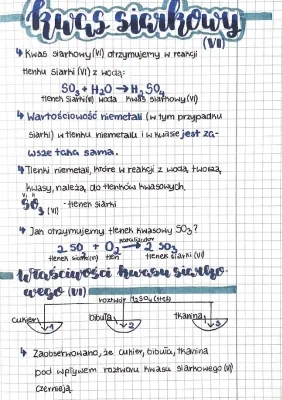 kwas siarkowy
(VI)
Kwas siarkowy(VI) otrzymujemy w reakcji
tlenku siarki (VI) z wodą:
SO₃ + H₂O → H₂SO₄
tlenek siarki(VI) woda kwas siarkowy(VI)
Wartościowość niemetali (w tym przypadku
siarki) w tlenku niemetalu i w kwasie jest za-
wsze taka sama.
Tlenki niemetali, które w reakcji z wodą, tworzą
kwasy, należą do tlenków kwasowych.
VI II
SO₃ (VI) - tlenek siarki
Jak otrzymujemy tlenek kwasowy SO₃?
katalizator
2 SO + O₂ → 2 SO₃
tlenek siarki(IV) tlen tlenek siarki (VI)
właściwości kwasu siarko-
wego (VI)
roztwór H₂SO₄ (stęż)
cukier bibuła tkanina
1 2 3
Zaobserwowano, że cukier, bibuła, tkanina
pod wpływem roztworu kwasu siarkowego (VI)
czernieją.